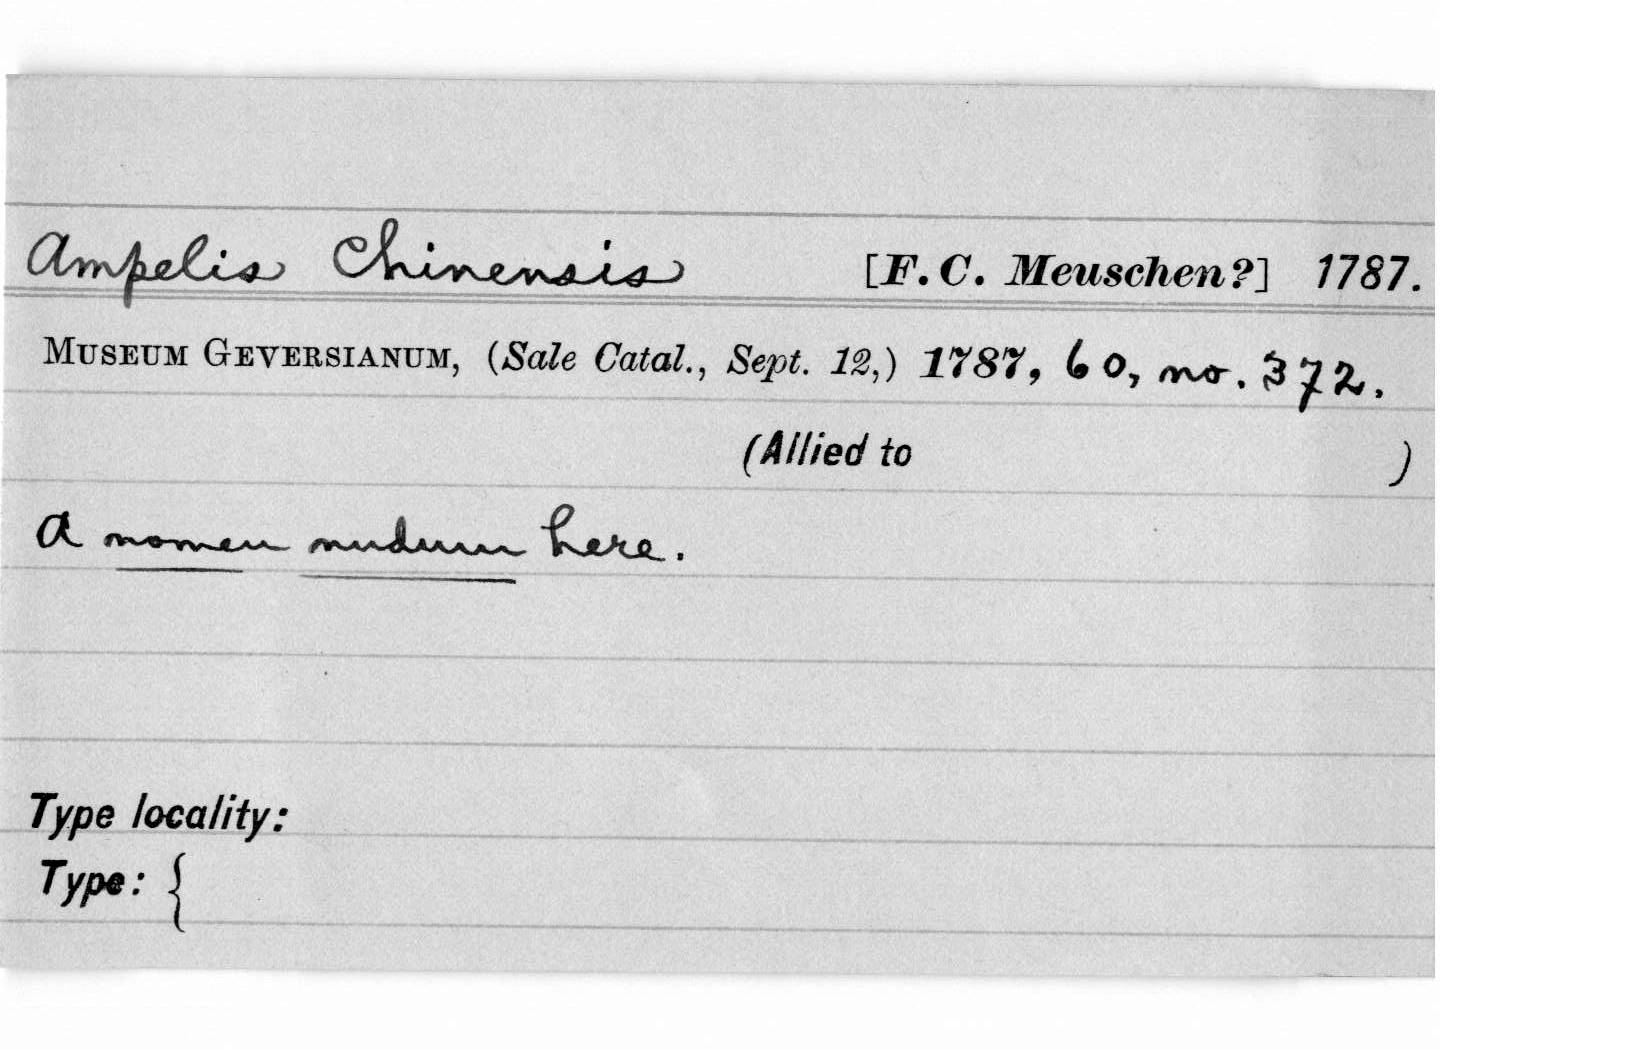 Ampelis Chinensis [F. C. Meuschen?] 1787.
MUSEUM GEVERSIANUM, (Sale Catal., Sept. 12,) 1787, 60, no. 372.
(Allied to )
A nomen nudum here.
Type locality:
Type: {